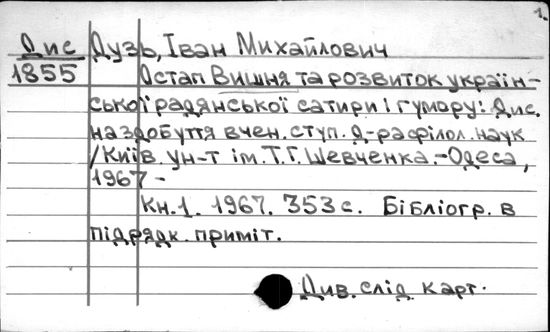 1.
Дис Дузь, Іван Михайлович
1855 Остап Вишня та розвиток україн-
ської радянської сатири і гумору: Дис.
на здобуття вчен. ступ. д-ра філол. наук
/Київ. ун-т ім. Т.Г. Шевченка.-Одеса,
1967-
Кн.1. 1967. 353 с. Бібліогр. в
підрядк. приміт.
Див. слід. карт.